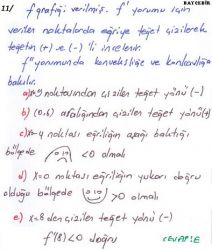 BAYÇEBİR
11/ f grafiği verilmiş. f' yorumu için
verilen noktalarda eğriye teğet çizilerek
teğetin (+) ve (-) 'li incelenir.
f'' yorumunda konvekslige ve konkavlığa
bakılır.
a) x=3 noktasından çizilen teğet yönü (-)
b) (0,6) aralığından çizilen teğet yönü (+)
c) x=4 noktası eğriliğin aşağı baktığı
bölgede <0 olmalı
d) x=0 noktası eğriliğin yukarı doğru
olduğu bölgede >0 olmalı
e) x=8 den çizilen teğet yönü (-)
f'(8)<0 doğru
CEVAP: E